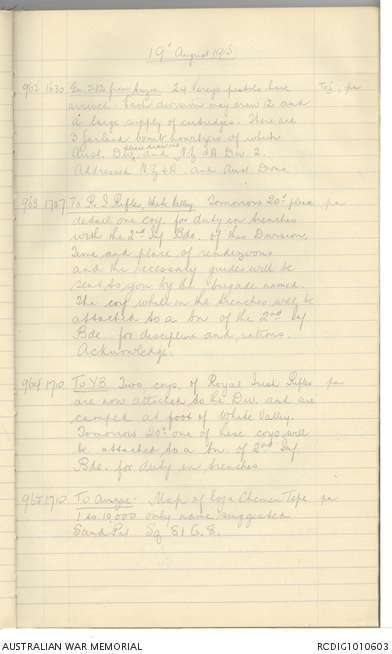 19th August 1915
962 1630 Gn. 212 from Anzac. 24 Verey pistols have Tel. pa
arrived. Each division may draw 12 and
a large supply of cartridges. There are
3 Garland bomb howitzers of which
Aust. Div. draws one and N.Z. & A Div 2.
Addressed N.Z. & A and Aust Divns.
963 1707 To R. I. Rifles, White Valley. Tomorrow 20th please pa
detail one coy. for duty in trenches
with the 2nd Inf Bde. of this Division.
Time and place of rendezvous
and the necessary guides will be
sent to you by the brigade named.
The coy while in the trenches will be
attached to a bn of the 2nd Inf
Bde. for discipline and rations.
Acknowledge.
964 1710 To YB Two coys. of Royal Irish Rifles pa
are now attached to the Div. and are
camped at foot of White Valley.
Tomorrow 20th one of these coys will
be attached to a bn. of 2nd Inf
Bde. for duty in trenches
965 1710 To Anzac. Map of Koja Chemen Tepe pa
1 to 10000 only name suggested
Sand Pit. Sq. 81 G. 8.
AUSTRALIAN WAR MEMORIAL
RCDIG1010603